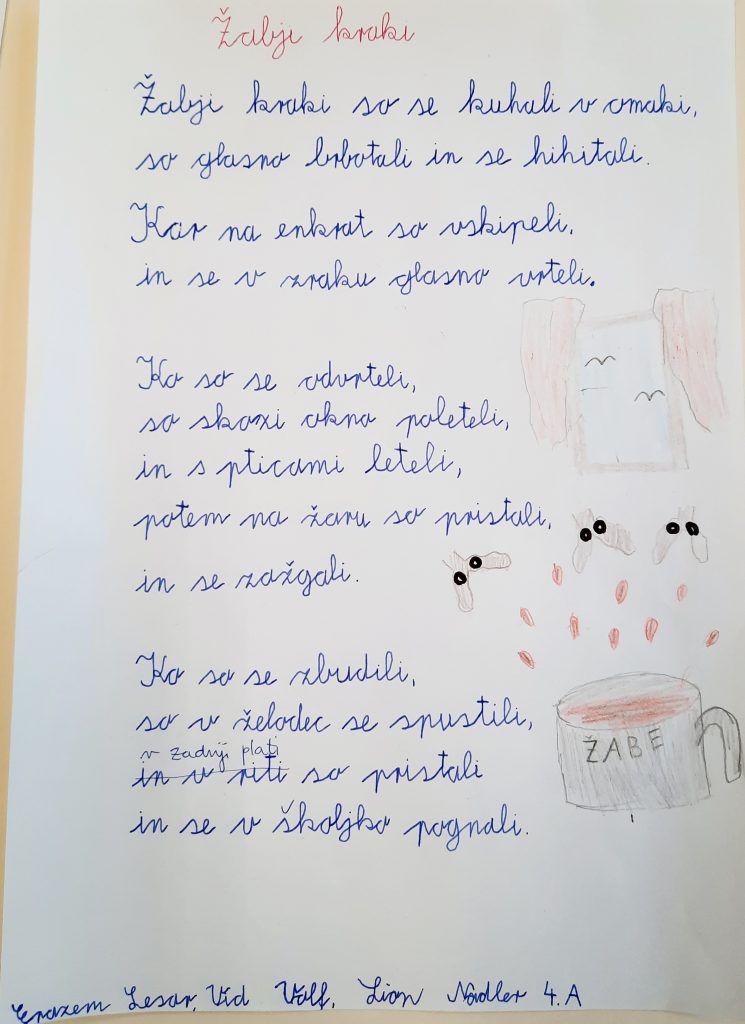 Žabji kraki
Žabji kraki so se kuhali v omaki,
so glasno brbotali in se hihitali.
Kar na enkrat so vskipeli,
in se v zraku glasno vrteli.
Ko so se odvrteli,
so skozi okno poleteli,
in s pticami leteli,
potem na žaru so pristali,
in se zažgali.
Ko so se zbudili,
so v želodec se spustili,
v zadnji plati
in v riti so pristali
in se v školjko pognali.
ŽABE
Erazem Lesar, Vid Volf, Lion Nördler 4. A